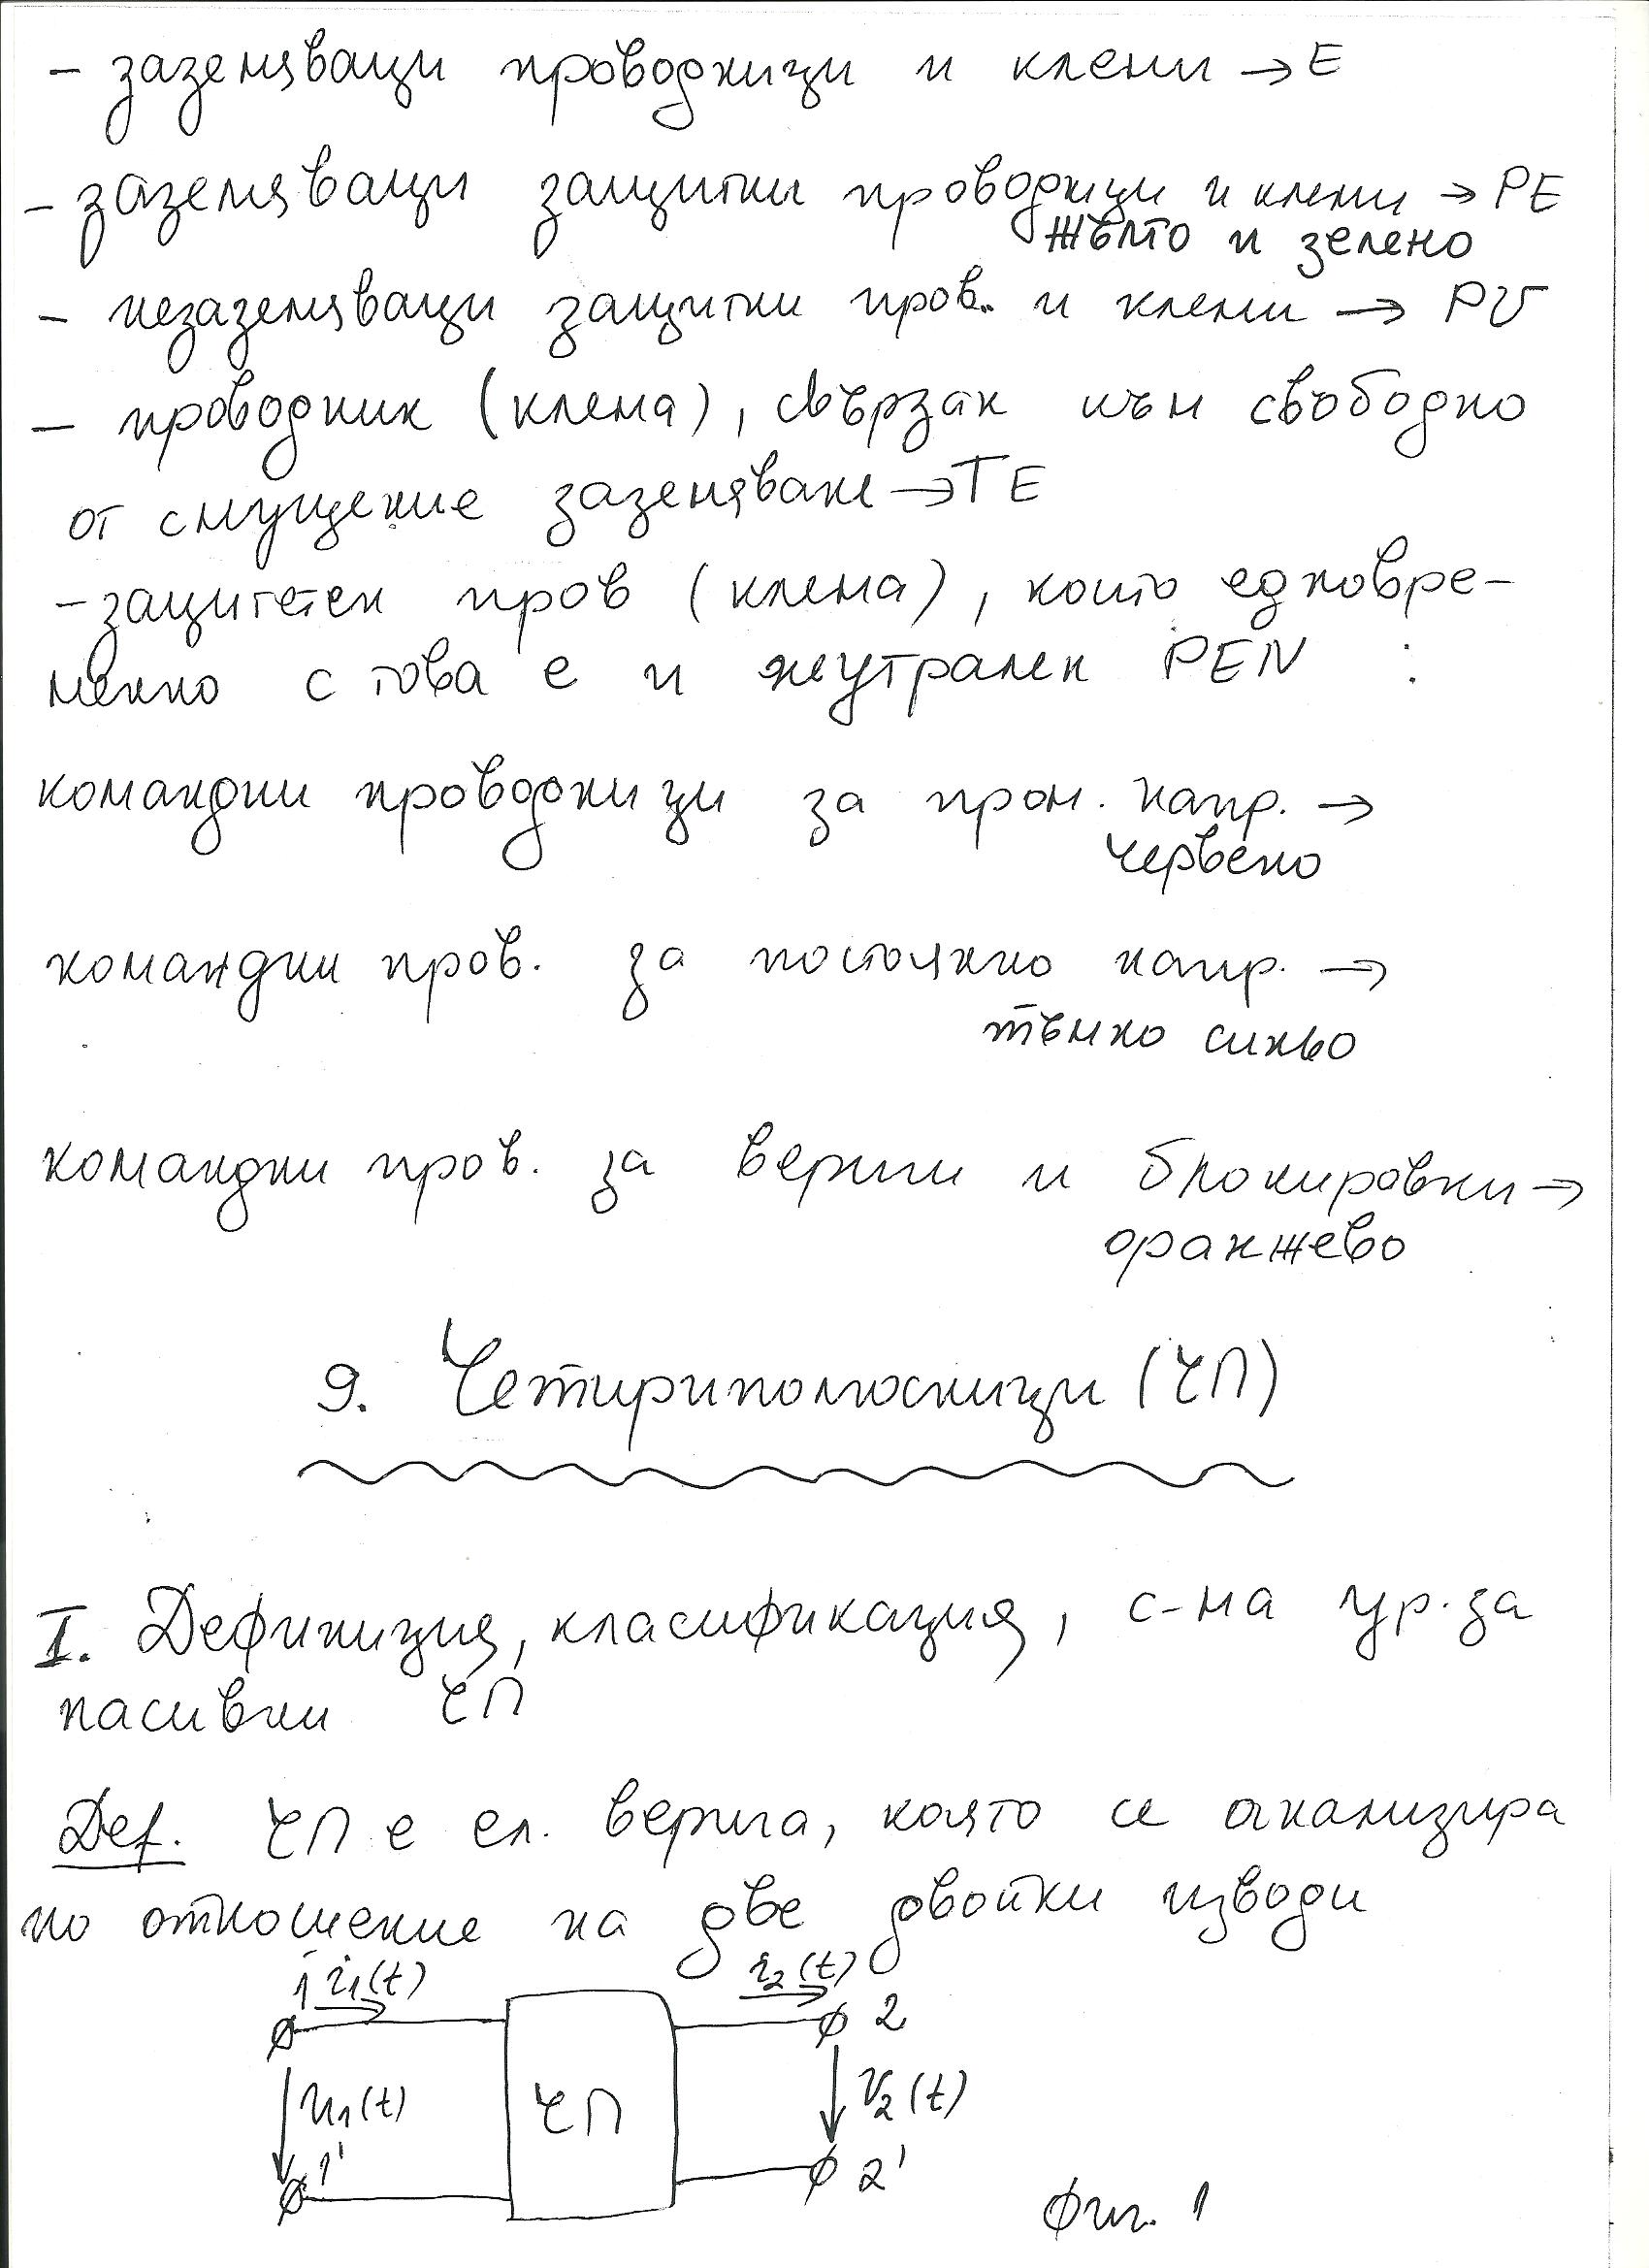 - заземяващи проводници и клеми → E
- заземяващи защитни проводници и клеми → PE
жълто и зелено
- незаземяващи защитни пров. и клеми → PU
- проводник (клема), свързан към свободно
от смущение заземяване → TE
- защитетен пров (клема), които едновре-
менно с това е и неутрален PEN
командни проводници за пром. напр. →
червено
командни пров. за постоянно напр. →
тъмно синьо
командни пров. за вериги и блокировки →
оранжево
9. Четириполюсници (ЧП)
I. Дефиниция, класификация, с-ма ур. за
пасивни ЧП
Def. ЧП е ел. верига, която се анализира
по отношение на две двойки изводи
1 i1(t) i2(t) 2
u1(t) ЧП u2(t)
1' 2'
Фиг. 1